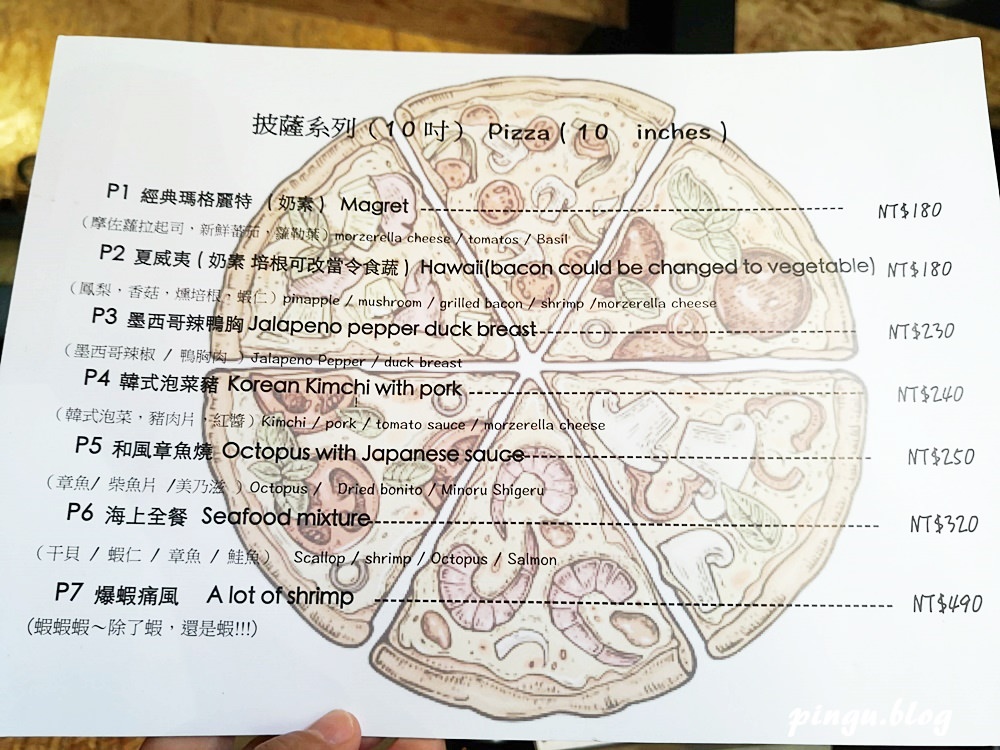 披薩系列（10吋） Pizza ( 10 inches )
P1 經典瑪格麗特 （奶素） Magret NT$180
（摩佐蘿拉起司，新鮮蕃茄，蘿勒葉）morzerella cheese / tomatos / Basil
P2 夏威夷 ( 奶素 培根可改當令食蔬 ) Hawaii(bacon could be changed to vegetable) NT$180
（鳳梨，香菇，燻培根，蝦仁）pinapple / mushroom / grilled bacon / shrimp /morzerella cheese
P3 墨西哥辣鴨胸 Jalapeno pepper duck breast NT$230
（墨西哥辣椒 / 鴨胸肉 ）Jalapeno Pepper / duck breast
P4 韓式泡菜豬 Korean Kimchi with pork NT$240
（韓式泡菜，豬肉片，紅醬）Kimchi / pork / tomato sauce / morzerella cheese
P5 和風章魚燒 Octopus with Japanese sauce NT$250
（章魚/ 柴魚片 /美乃滋 ）Octopus / Dried bonito / Minoru Shigeru
P6 海上全餐 Seafood mixture NT$320
（干貝 / 蝦仁 / 章魚 / 鮭魚） Scallop / shrimp / Octopus / Salmon
P7 爆蝦痛風 A lot of shrimp NT$490
（蝦蝦蝦～除了蝦，還是蝦!!!）
pingu.blog